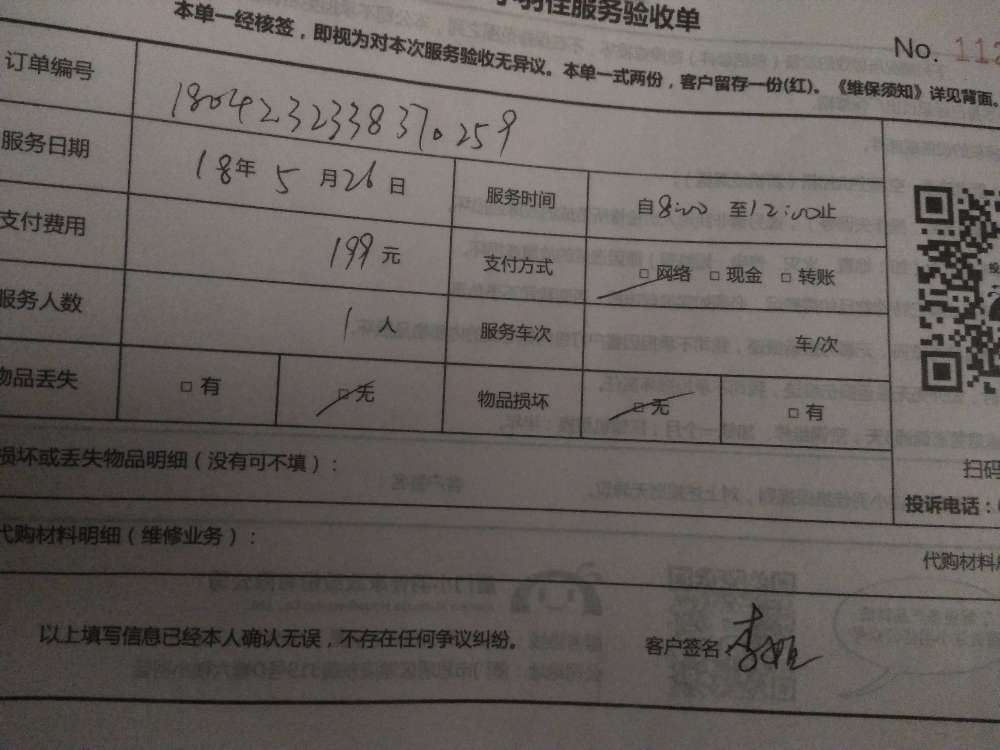 佳服务验收单
No. 112
本单一经核签，即视为对本次服务验收无异议。本单一式两份，客户留存一份(红)。《维保须知》详见背面。
订单编号 180423233837.259
服务日期 18年 5 月 26 日 服务时间 自 8:00 至 12:00 止
支付费用 199 元 支付方式 □ 网络 □ 现金 □ 转账
服务人数 1 人 服务车次 车/次
物品丢失 □ 有 □ 无 物品损坏 □ 无 □ 有
损坏或丢失物品明细（没有可不填）：
扫码
投诉电话：
代购材料明细（维修业务）：
代购材料
以上填写信息已经本人确认无误，不存在任何争议纠纷。 客户签名 李